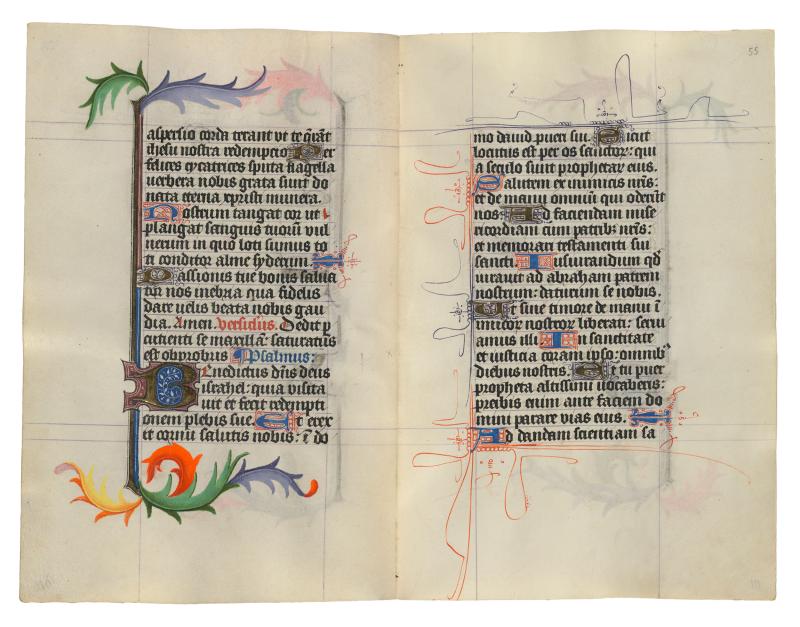 aspersio corda terant ut te querat
ihesu nostra redempcio Per
felices cycatrices sputa flagella
verbera nobis grata sunt do
nata eterna xpristi munera.
Nostrum tangat cor ut
plangat sanguis tuorum vul
nerum in quo loti sumus to
ti conditor alme syderum.
Passionis tue bonis salua
tor nos inebria qua fidelis
dare uelis beata nobis gau
dia. Amen. versiculus. Dedit p
utienti se maxillā: saturatus
est obprobrijs Psalmus:
Benedictus dñs deus
israhel: quia visita
uit et fecit redempti
onem plebis sue. Et erex
it cornu salutis nobis: ī do
55
mo dauid pueri sui. Sicut
locutus est per os sanctor: qui
a seculo sunt prophetar eius.
Salutem ex inimicis nr̄is:
et de manu omniū qui oderūt
nos. Ad faciendam mise
ricordiam cum patrib; nr̄is:
et memorari testamenti sui
sancti. Iusiurandum qd̄
iurauit ad abraham patrem
nostrum: daturum se nobis.
Ut sine timore de manu ī
imicor nostror liberati: serui
amus illi In sanctitate
et iusticia coram ipso: omnib;
diebus nostris. Et tu puer
propheta altissimi uocaberis:
preibis enim ante faciem do
mini parare vias eius.
Ad dandam scientiam sa